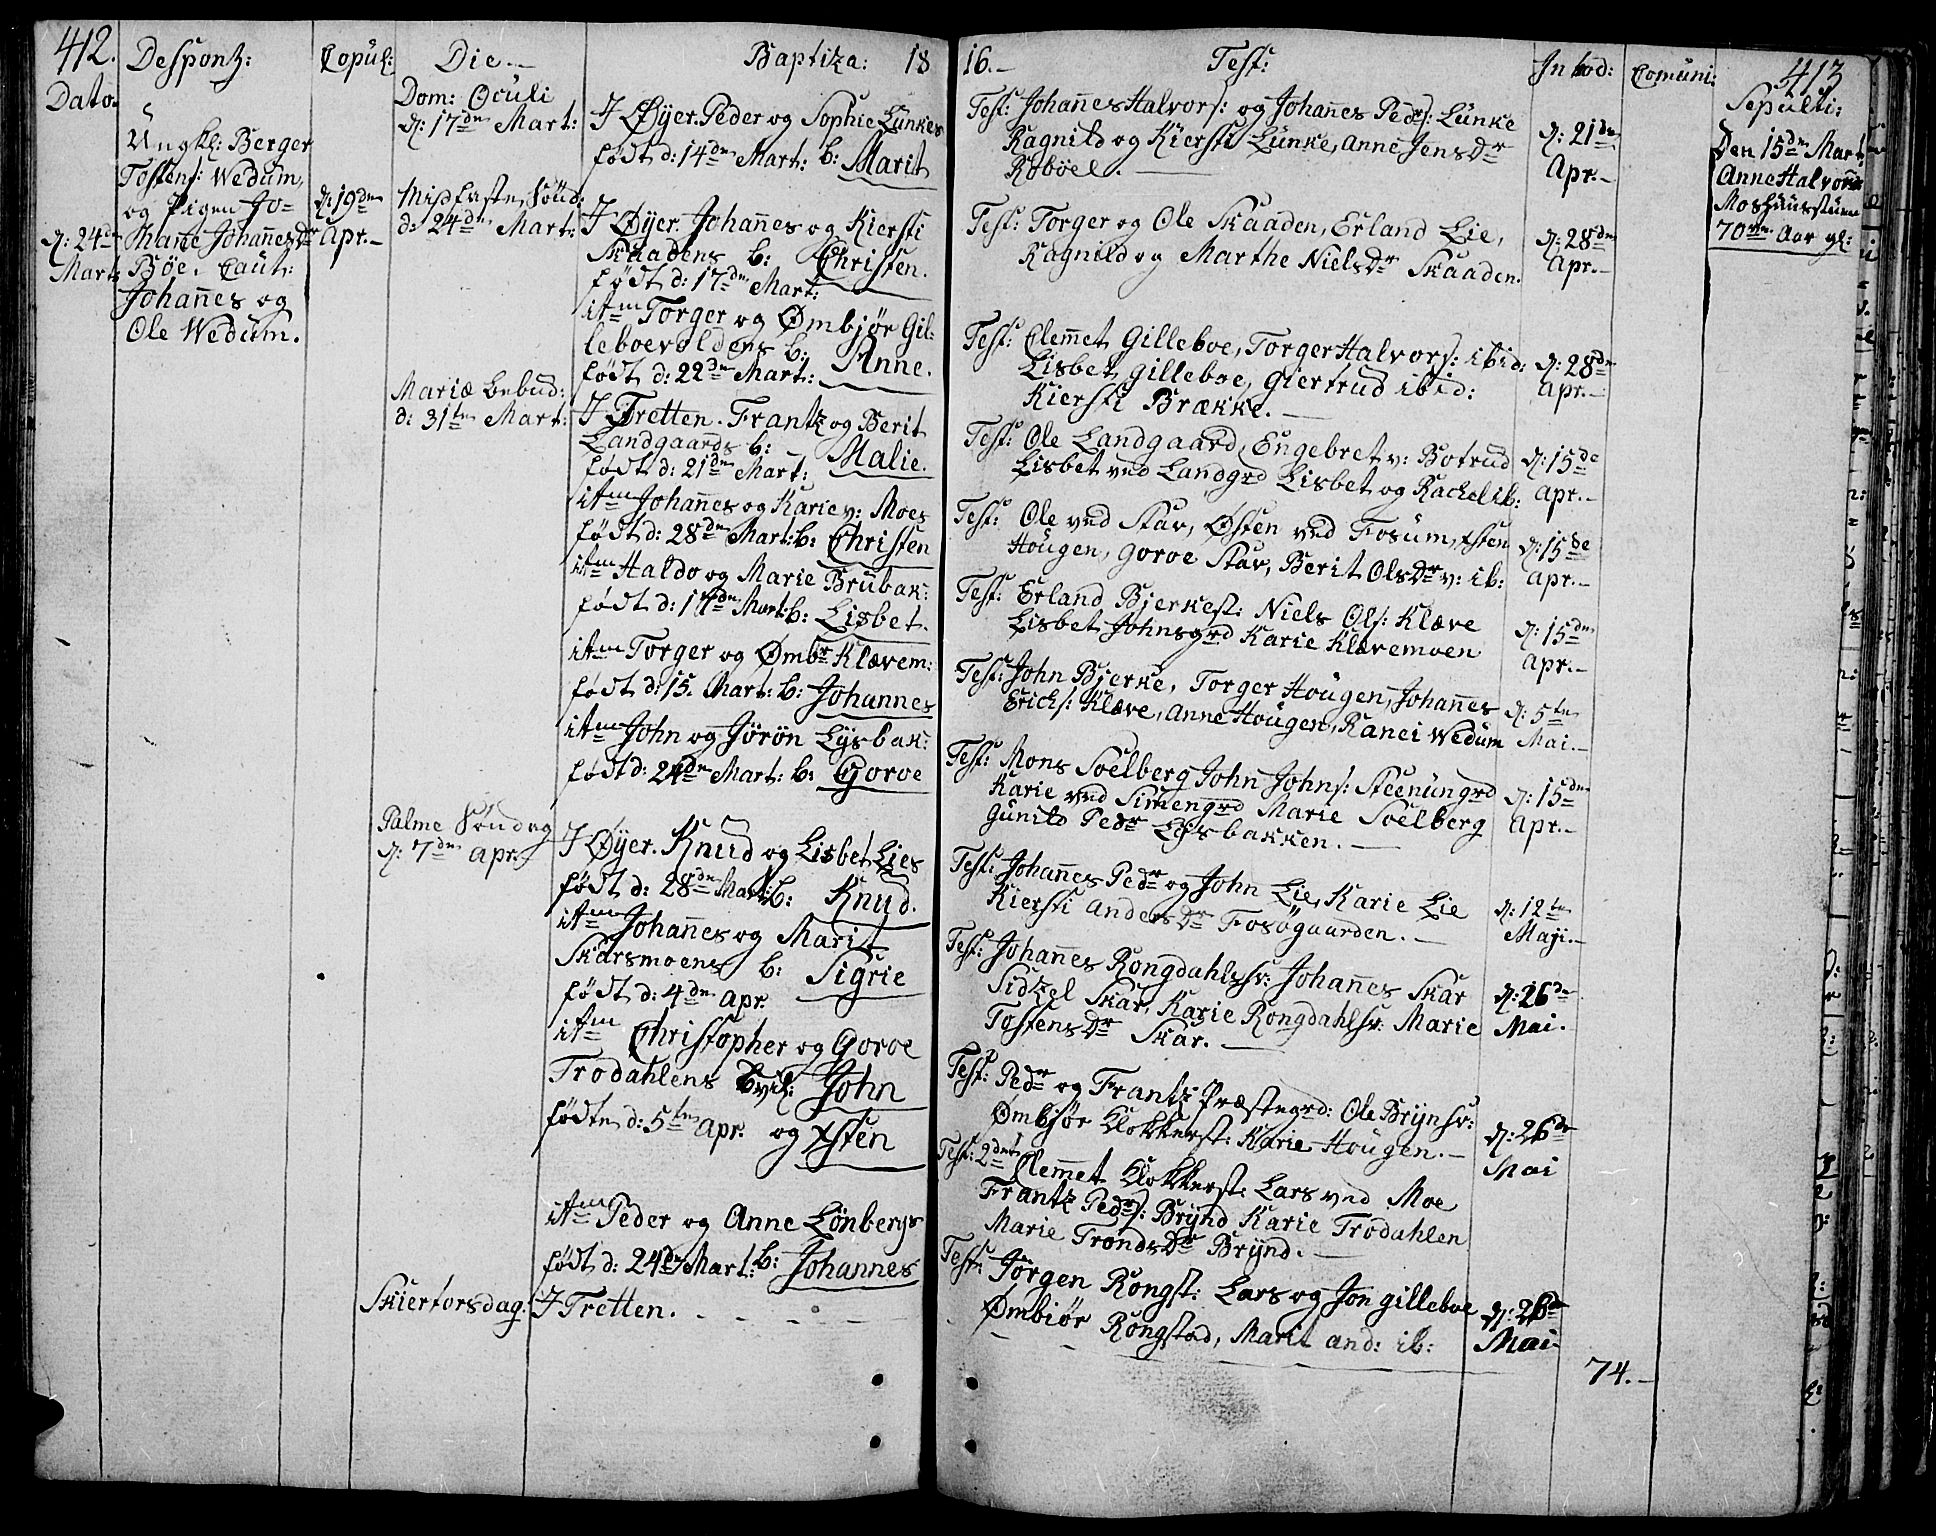 412.
Desponz:
Copul:
Die.-
Baptiza: 18
Dato.
Ungkl: Berger
Tostens: Wedum,
og Pigen Jo-
hane JohanesDr
Böe. Caut:
Johanes og
Ole Wedum.
d: 24de
Mart:
d: 19de
Apr.-
Dom: Oculi
d: 17de Mart:
I Øyer. Peder og Sophie Lunkes
født d: 14de Mart: b: Marit
Midfaste Sönd:
d: 24de Mart:
I Øyer. Johanes og Kiersti
Skaadens b: Christen.
født d: 17de Mart:
itm Torger og Ømbjør Gil-
leboevoldens b:
født d: 22de Mart: Anne.
Mariæ bebud:
d: 31te Mart:
I Tretten. Frantz og Berit
Landgaards b:
født d: 21de Mart: Malie.
itm Johanes og Karie v: Moes
født d: 28de Mart: b: Christen
itm Haldo og Marie Brubak:
født d: 17de Mart: b: Lisbet.
itm Torger og Ømbr Klævem:
født d: 15. Mart: b: Johannes
itm John og Jörön Lysbak:
født d: 24de Mart: b: Goroe
Palme Søndag
d: 7de Apr:
I Øyer. Knud og Lisbet Lies
født d: 28de Mart: b: Knud.
itm Johanes og Marit
Skarsmoens b: Sigrie
født d: 4de Apr.
itm Christopher og Goroe
Trodahlens tvil: John
fødte d: 5te Apr. og Xsten
itm Peder og Anne Lönbergs
født d: 24de Mart: b: Johannes
Skiertorsdag: I Tretten. - - - - -
16.-
Test:
Introd:
Comuni:
413
Sepulti:
Test: Johanes Halvors: og Johanes Peds: Lunke
Ragnild og Kiersti Lunke, Anne JensDr
Roböel.-
d: 21de
Apr.-
Test: Torger og Ole Skaaden, Erland Lie,
Ragnild og Marthe NielsDr Skaaden.
d: 28de
Apr.-
Test: Clemet Gilleboe, Torger Halvors: ibid:
Lisbet Gilleboe, Giertrud ibid:
Kiersti Brække.-
d: 28de
Apr.-
Test: Ole Landgaard, Engebret v: Botrud
Lisbet ved Landgrd Lisbet og Rachel ib:
d: 15de
Apr.-
Test: Ole ved Star, Østen ved Fosum, Xsten
Hougen, Goroe Star, Berit OlsDr v: ib:
d: 15de
Apr.-
Test: Erland Bjerkest: Niels Ols: Klæve
Lisbet Johnsgrd Karie Klævemoen
d: 15de
Apr.-
Test: John Bjerke, Torger Hougen, Johanes
Erichs: Klæve, Anne Hougen, Ranei Wedum
d: 5te
Mai.-
Test: Mons Soelberg John Johns: Steenungrd
Karie ved Simengrd Marie Soelberg
Gunild Pedr Lysbakken.-
d: 15de
Apr.-
Test: Johanes Pedr og John Lie, Karie Lie
Kiersti AndersDr Fosögaarden.-
d: 12te
Maji.-
Test: Johanes Rongdahlsv: Johanes Skar
Sidzel Skar, Karie Rongdahlsv: Marie
TostensDr Skar.-
d: 26de
Mai.
Test: Pedr og Frantz Præstegrd: Ole Brynsv:
Ømbjør Klokkerst: Karie Hougen.-
d: 26de
Mai
Test: 2den Clemet Klokkerst: Lars ved Moe
Frantz Peds: Brynd Karie Trodahlen
Marie TrondsDr Brynd.-
Test: Jörgen Rongst: Lars og Jon Gilleboe
Ømbiör Rongstad, Marit And: ib:
d: 26de
Mai
74.-
Den 15de Mart
Anne Halvors:
Moshuusstuen
70 Aar gl: